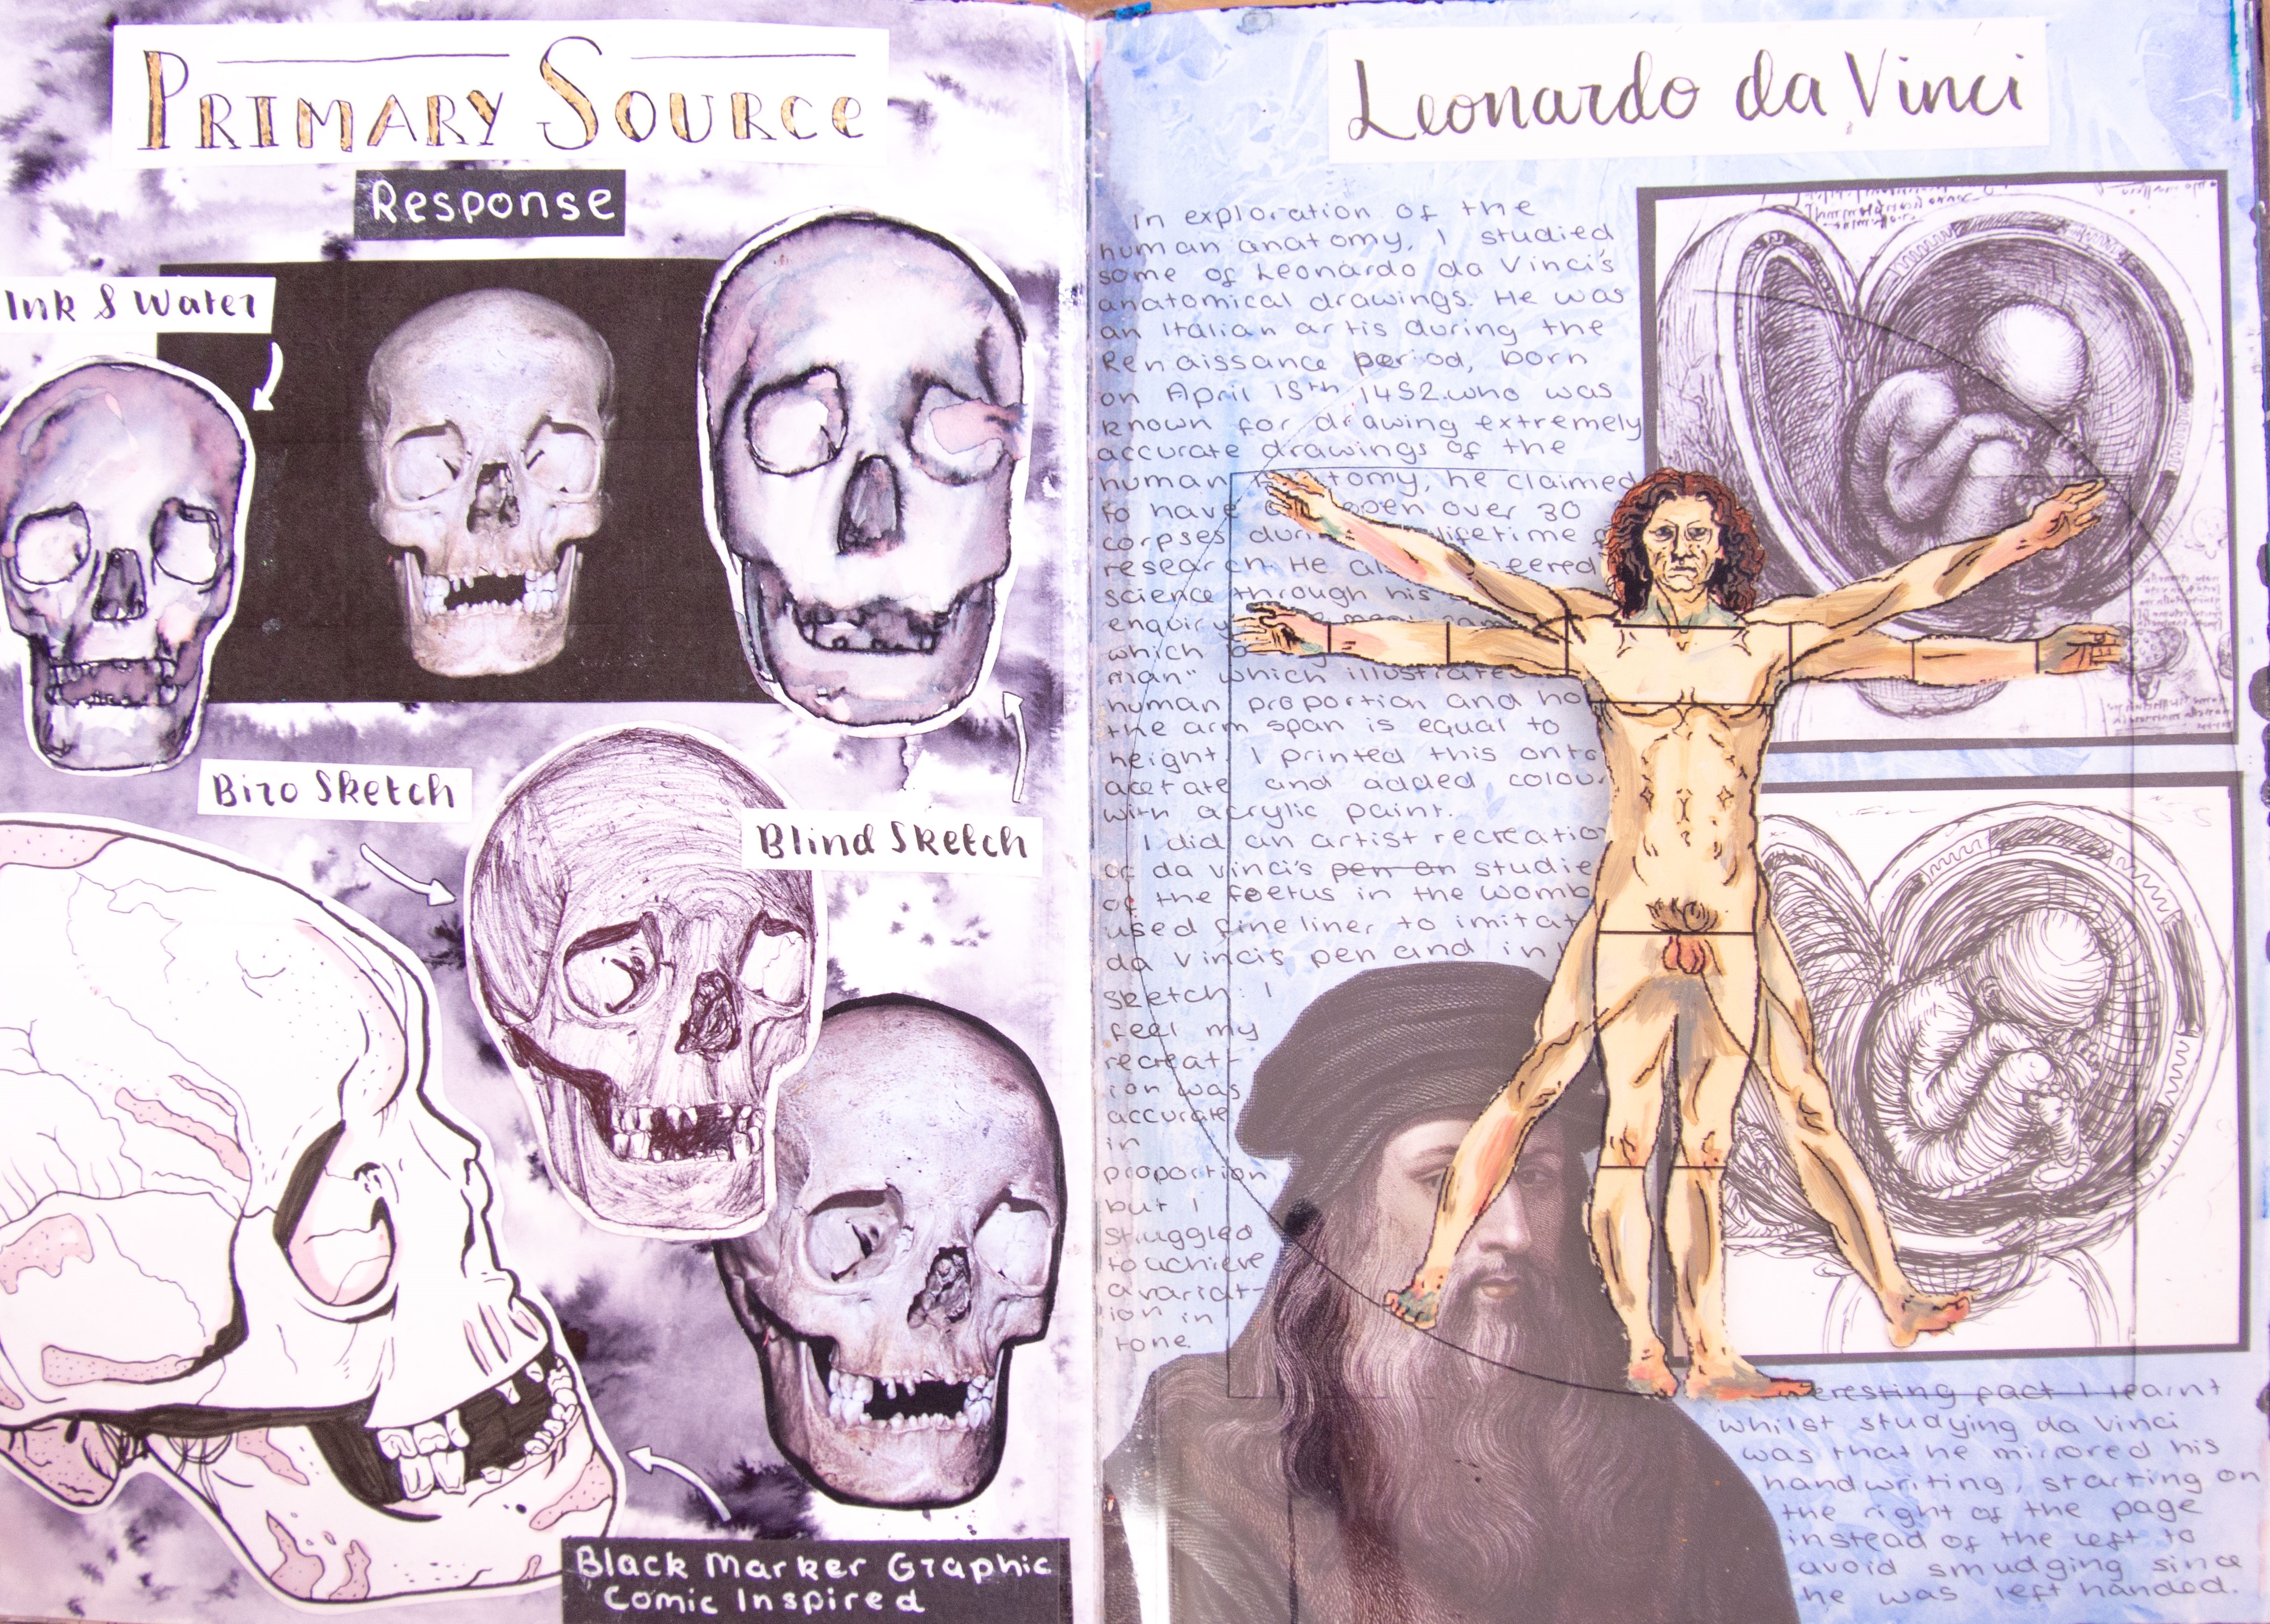 PRIMARY SOURCE
Response
Ink & Water
Biro Sketch
Blind Sketch
Black Marker Graphic
Comic Inspired
Leonardo da Vinci
In exploration of the
human anatomy, I studied
some of Leonardo da Vinci's
anatomical drawings. He was
an Italian artis during the
Renaissance period, born
on April 15th 1452.who was
known for drawing extremely
accurate drawings of the
human tomy, he claimed
to have open over 30
corpses lifetime
research. He eered
science through his
enquiry
which
man" which illustrates
human proportion and
the arm span is equal to
height. I printed this onto
acetate and added colour
with acrylic paint.
I did an artist recreatio
of da Vinci's pen an studie
of the foetus in the womb
used fineliner to imitat
da Vincis pen and in
sketch. I
feel my
recreat-
ion was
accurate
in
proportion
but I
struggled
to achieve
a variat-
ion in
tone.
eresting fact I learnt
whilst studying da Vinci
was that he mirrored his
handwriting, starting on
the right of the page
instead of the left to
avoid smudging since
he was left handed.